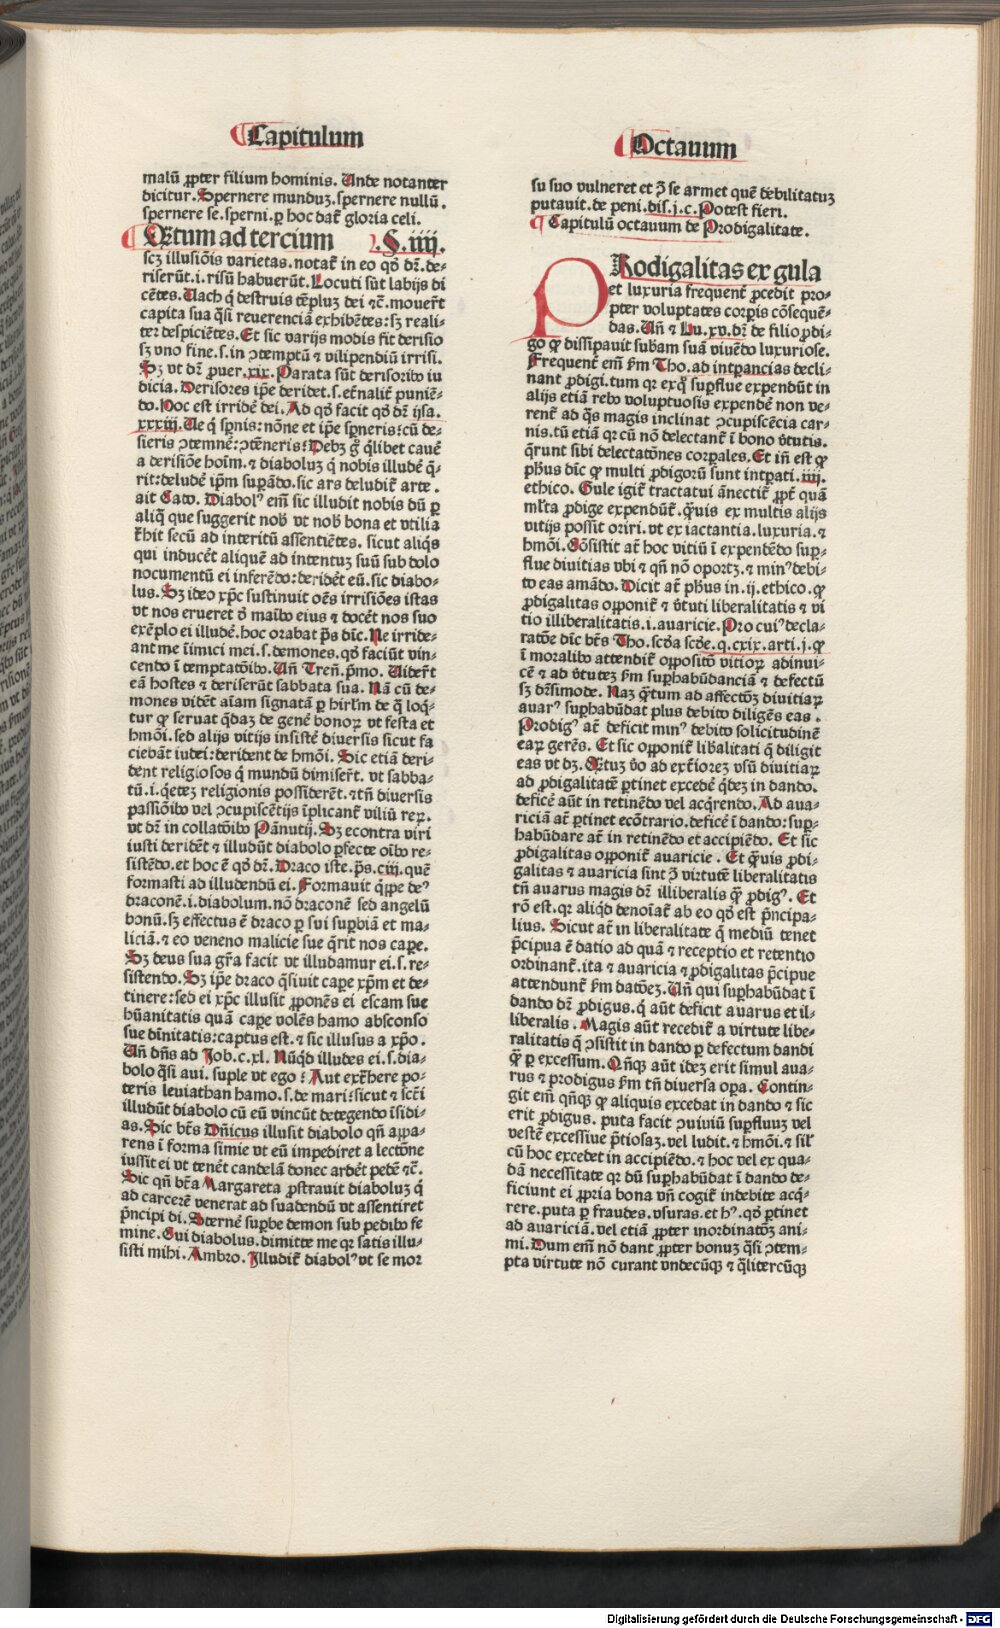 Capitulum
malū ꝓpter filium hominis. Unde notanter
dicitur. Spernere munduꝫ. spernere nullū.
spernere se. sperni. ꝑ hoc dat̄ gloria celi.
Q̄tum ad tercium .§. iiij.
scꝫ illusiōis varietas. notat̄ in eo qđ dr̄. de-
riserūt .i. risū habuerūt. Locuti sūt labijs di
cētes. Uach q̄ destruis tēpluꝫ dei ⁊c̄. mouert̄
capita sua q̄si reuerenciā exhibētes: sꝫ reali-
ter despiciētes. Et sic varijs modis fit derisio
sꝫ vno fine .s. in ꝯtemptū ⁊ vilipendiū irrisi.
Sꝫ vt dr̄ ꝓuer. xix. Parata sūt derisoribꝰ iu
dicia. Derisores ip̄e deridet .s. et̄nalit̄ puniē-
do. Hoc est irridē dei. Ad qđ facit qđ dr̄ ysa.
xxxiij. Ue q̄ sp̄nis: nōne et ip̄e sp̄neris: cū de-
sieris ꝯtemnē: ꝯtēneris: Debꝫ g̊ q̄libet cauē
a derisiōe hoīm. ⁊ diaboluꝫ q̄ nobis illudē q̄-
rit: deludē ip̄m suꝑādo. sic ars deludit̄ arte.
ait Cato. Diabolꝰ em̄ sic illudit nobis dū ꝑ
aliq̄ que suggerit nob̄ vt nob̄ bona et vtilia
t̄hit secū ad interitū assentiētes. sicut aliq̄s
qui inducēt aliquē ad intentuꝫ suū sub dolo
nocumentū ei inferēdo: deridēt eū. sic diabo-
lus. Sꝫ ideo xp̄c sustinuit oēs irrisiōes istas
vt nos erueret d̄ maībꝰ eius ⁊ docēt nos suo
exēplo ei illudē. hoc orabat p̄s dīc. Ne irride-
ant me īimici mei .s. demones. qđ faciūt vin-
cendo ī temptatōibꝰ. Uñ Tren̄. p̄mo. Uidert̄
eā hostes ⁊ deriserūt sabbata sua. Nā cū de-
mones vidēt aīam signatā ꝑ hirlm̄ de q̄ loq̄-
tur ꝙ seruat q̄daꝫ de genē bonoꝝ vt festa et
hmōi. sed alijs vitijs insistē diuersis sicut fa
ciebāt iudei: derident de hmōi. Sic etiā deri-
dent religiosos q̄ mundū dimisert̄. vt sabba-
tū .i. q̄eteꝫ religionis possiderēt. ⁊ tn̄ diuersis
passiōibꝰ vel ꝯcupiscētijs īplicant̄ viliū reꝝ.
vt dr̄ in collatōibꝰ Pānutij. Sꝫ econtra viri
iusti deridēt ⁊ illudūt diabolo ꝑfecte oībꝰ re-
sistēdo. et hoc ē qđ dr̄. Draco iste. p̄s. ciij. quē
formasti ad illudendū ei. Formauit q̄ip̄e deꝰ
draconē .i. diabolum. nō draconē sed angelū
bonū. sꝫ effectus ē draco ꝑ sui suꝑbiā et ma-
liciā. ⁊ eo veneno malicie sue q̄rit nos caꝑe.
Sꝫ deus sua gr̄a facit vt illudamur ei .s. re-
sistendo. Sꝫ ip̄e draco q̄siuit caꝑe xp̄m et de-
tinere: sed ei xp̄c illusit ꝓponēs ei escam sue
hūanitatis quā caꝑe volēs hamo absconso
sue dīnitatis: captus est. ⁊ sic illusus a xp̄o.
Uñ dn̄s ad Job. c. xl. Nūq̄d illudes ei .s. dia-
bolo q̄si aui. suple vt ego: Aut ext̄here po-
teris leuiathan hamo .s. de mari: sicut ⁊ sct̄i
illudūt diabolo cū eū vincūt detegendo īsidi-
as. Sic bt̄s Dn̄icus illusit diabolo qn̄ aꝑa-
rens ī forma simie vt eū impediret a lectōne
iussit ei vt tenēt candelā donec ardēt pedē ⁊c̄.
Sic qn̄ bt̄a Margareta ꝓstrauit diaboluꝫ q̄
ad carcerē venerat ad suadendū vt assentiret
p̄ncipi di. Sternē suꝑbe demon sub pedibꝰ fe
mine. Cui diabolus. dimitte me qꝛ satis illu-
sisti mihi. Ambro. Illudit̄ diabolꝰ vt se mor
Octauum
su suo vulneret et ꝯ̄ se armet quē debilitatuꝫ
putauit. de peni. dis. j. c. Potest fieri.
¶ Capitulū octauum de Prodigalitate.
PRodigalitas ex gula
et luxuria frequent̄ ꝓcedit pro-
pter voluptates corꝑis cōsequē-
das. Uñ ⁊ Lu. xv. dr̄ de filio ꝓdi-
go ꝙ dissipauit subam suā viuēdo luxuriose.
Frequent̄ em̄ fm̄ Tho. ad intꝑancias decli-
nant ꝓdigi. tum qꝛ exq̄ suꝑflue expendūt in
alijs etiā rebꝰ voluptuosis expendē non ve-
rent̄ ad q̄s magis inclinat ꝯcupiscēcia car-
nis. tū etiā qꝛ cū nō delectant̄ ī bono v̄tutis.
q̄runt sibi delectatōnes corꝑales. Et in̄ est ꝙ
ph̄us dīc ꝙ multi ꝓdigorū sunt intꝑati. iiij.
ethico. Gule igit̄ tractatui ānectit̄ ꝓpt̄ quā
ml̄ta ꝓdige expendūt̄. q̄uis ex multis alijs
vitijs possit oriri. vt ex iactantia. luxuria. ⁊
hmōi. Cōsistit at̄ hoc vitiū ī expendēdo suꝑ-
flue diuitias vbi ⁊ qn̄ nō oportꝫ. ⁊ minꝰ debi-
to eas amādo. Dicit at̄ ph̄us in .ij. ethico. ꝙ
ꝓdigalitas opponit̄ ⁊ v̄tuti liberalitatis ⁊ vi
tio illiberalitatis .i. auaricie. Pro cuiꝰ decla-
ratōe dīc bt̄s Tho. scđa scđe. q. cxix. arti. j. ꝙ
ī moralibꝰ attendit̄ oppositō vitioꝝ adinui-
cē ⁊ ad v̄tuteꝫ fm̄ suꝑhabūdanciā ⁊ defectū
sꝫ dr̄simode. Naꝫ q̄tum ad affectōꝫ diuitiaꝝ
auarꝰ suꝑhabūdat plus debito diligēs eas.
Prodigꝰ at̄ deficit minꝰ debito solicitudinē
eaꝝ gerēs. Et sic opponit̄ lib̄alitati q̄ diligit
eas vt dꝫ. Q̄tuꝫ v̄o ad ext̄ioreꝫ vsū diuitiaꝝ
ad ꝓdigalitatē ꝑtinet excedē q̄deꝫ in dando.
deficē aūt in retinēdo vel acq̄rendo. Ad aua-
riciā at̄ ꝑtinet ecōtrario. deficē ī dando: suꝑ-
habūdare at̄ in retinēdo et accipiēdo. Et sic
ꝓdigalitas opponit̄ auaricie. Et q̄uis ꝓdi-
galitas ⁊ auaricia sint ꝯ̄ virtutē liberalitatis
tn̄ auarus magis dr̄ illiberalis q̄ꝫ ꝓdigꝰ. Et
rō est. qꝛ aliq̄d denoīat̄ ab eo qđ est p̄ncipa-
lius. Sicut at̄ in liberalitate q̄ mediū tenet
p̄cipua ē datio ad quā ⁊ receptio et retentio
ordinant̄. ita ⁊ auaricia ⁊ ꝓdigalitas p̄cipue
attendunt̄ fm̄ datōeꝫ. Uñ qui suꝑhabūdat ī
dando dr̄ ꝓdigus. q̄ aūt deficit auarus et il-
liberalis. Magis aūt recedit̄ a virtute libe-
ralitatis q̄ ꝯsistit in dando ꝑ defectum dandi
q̄ꝫ ꝑ excessum. Qn̄qꝫ aūt ideꝫ erit simul aua-
rus ⁊ prodigus fm̄ tn̄ diuersa oꝑa. Contin-
git em̄ qn̄qꝫ ꝙ aliquis excedat in dando ⁊ sic
erit ꝓdigus. puta facit ꝯuiuiū suꝑfluuꝫ vel
vestē excessiue p̄tiosaꝫ. vel ludit. ⁊ hmōi. ⁊ sil̄
cū hoc excedet in accipiēdo. ⁊ hoc vel ex qua-
dā necessitate qꝛ dū suꝑhabūdat ī dando de-
ficiunt ei ꝓpria bona vn̄ cogit̄ indebite acq̄-
rere. puta ꝑ fraudes. vsuras. et hꝰ. qđ ꝑtinet
ad auariciā. vel etiā ꝓpter inordinatōꝫ ani-
mi. Dum em̄ nō dant ꝓpter bonuꝫ q̄si ꝯtem-
pta virtute nō curant vndecūqꝫ ⁊ q̄litercūqꝫ
Digitalisierung gefördert durch die Deutsche Forschungsgemeinschaft - DFG